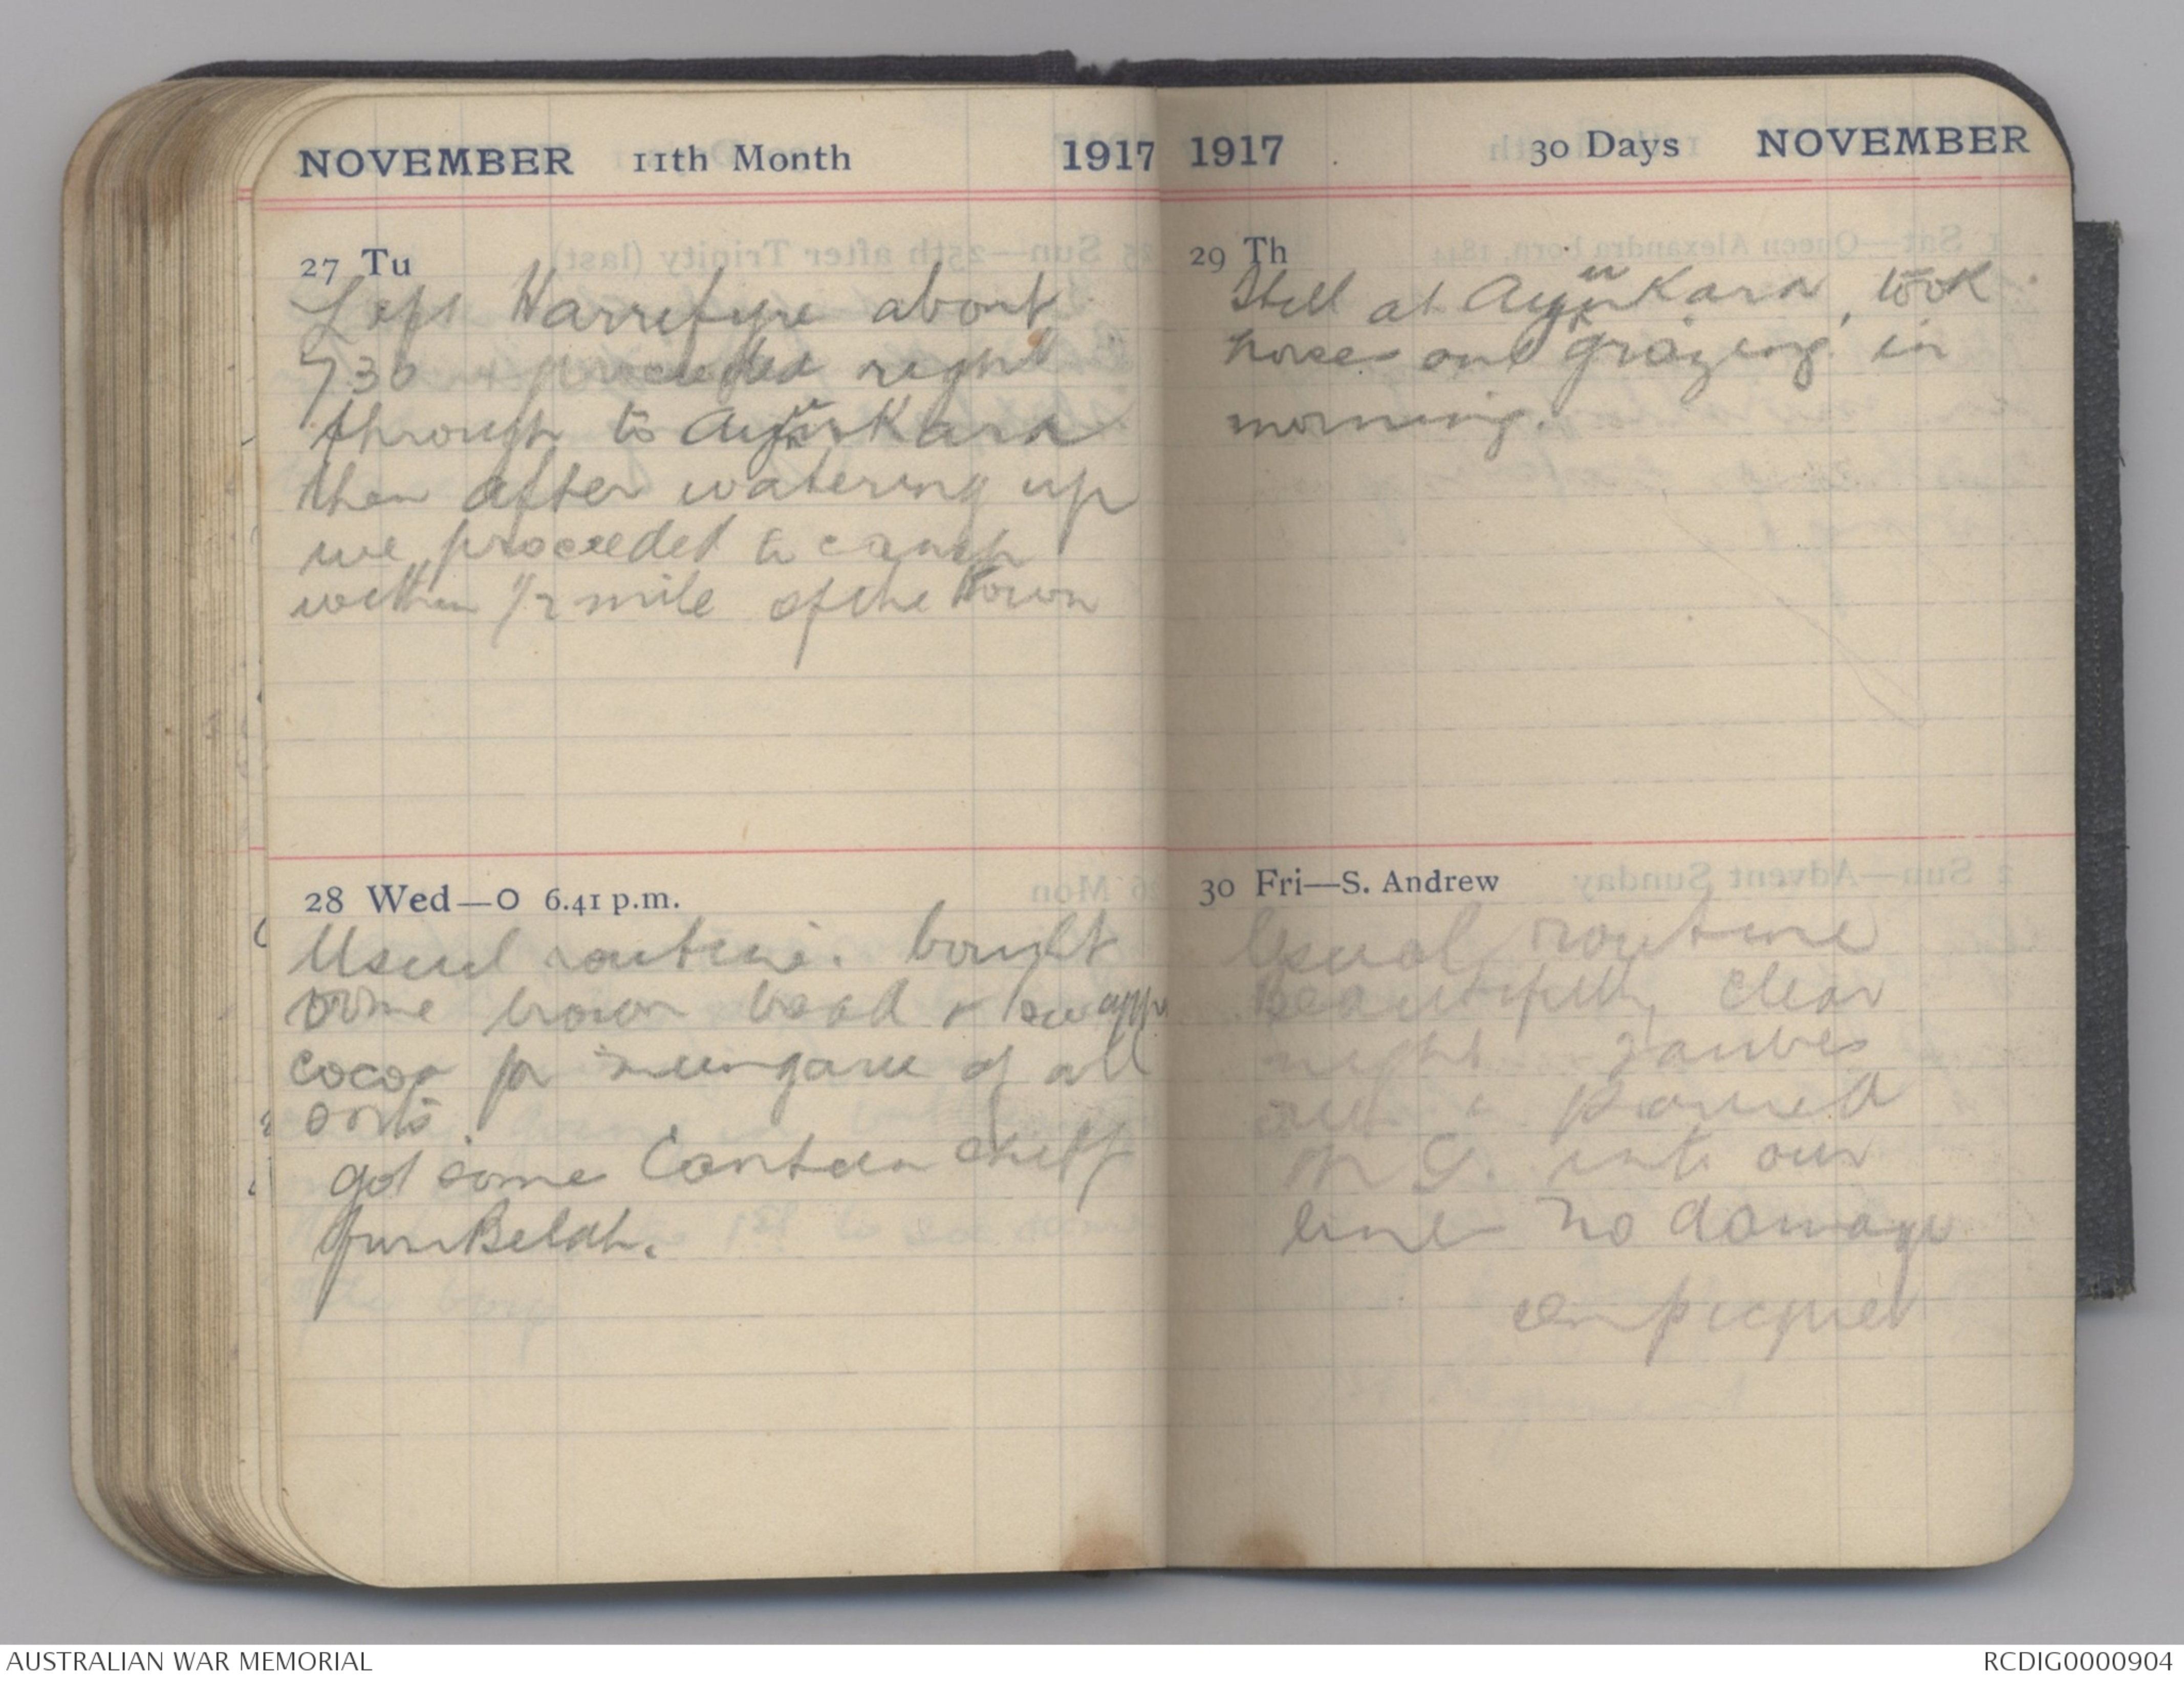 NOVEMBER 11th Month 1917
27 Tu
Left Harrefyre about
730 + proceeded right
through to Ayun Kara
then after watering up
we proceeded to camp
within 1/2 mile of the Town
28 Wed—O 6.41 p.m.
Usual routine. bought
some brown bread &
cocoa for of all
sorts.
got some Canteen stuff
from Belah.
1917 30 Days NOVEMBER
29 Th
Still at Ayun Kara, took
horses out grazing in
morning.
30 Fri—S. Andrew
Usual routine
Beautifully clear
night taubes
out & poured
M G. into our
lines no damage
on picquet
AUSTRALIAN WAR MEMORIAL
RCDIG0000904